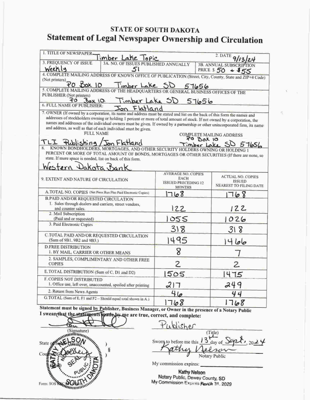 STATE OF SOUTH DAKOTA
Statement of Legal Newspaper Ownership and Circulation
1. TITLE OF NEWSPAPER Timber Lake Topic
2. DATE 9/13/24
3. FREQUENCY OF ISSUE Weekly
3A. NO. OF ISSUES PUBLISHED ANNUALLY 51
3B. ANNUAL SUBSCRIPTION PRICE $ 50 + $55
4. COMPLETE MAILING ADDRESS OF KNOWN OFFICE OF PUBLICATION (Street, City, County, State and ZIP+4 Code) (Not printers)
PO Box 10 Timber Lake SD 57656
5. COMPLETE MAILING ADDRESS OF THE HEADQUARTERS OF GENERAL BUSINESS OFFICES OF THE PUBLISHER (Not printers)
PO Box 10 Timber Lake SD 57656
6. FULL NAME OF PUBLISHER: Jon Flatland
7. OWNER (If owned by a corporation, its name and address must be stated and
FULL NAME
COMPLETE MAILING ADDRESS
TLT Publishing/Jon Flatland
PO Box 10
Timber Lake SD 57656
8. KNOWN BONDHOLDERS, MORTGAGEES, AND OTHER SECURITY HOLDERS OWNING OR HOLDING 1 PERCENT OR MORE OF TOTAL AMOUNT OF BONDS, MORTGAGES OR OTHER SECURITIES (If there are none, so state. If more space is needed, list on back of this form.
Western Dakota Bank
9. EXTENT AND NATURE OF CIRCULATION
AVERAGE NO. COPIES EACH ISSUED PRECEEDING 12 MONTHS
ACTUAL NO. COPIES ISSUED NEAREST TO FILING DATE
A. TOTAL NO. COPIES 1768 1768
B. PAID AND/OR REQUESTED CIRCULATION
1. Sales through dealers and carriers, street vendors, and counter sales 122 122
2. Mail Subscription (Paid and or requested) 1055 1026
3. Paid Electronic Copies 318 318
C. TOTAL PAID AND/OR REQUESTED CIRCULATION (Sum of 9B1, 9B2 and 9B3.) 1495 1466
D. FREE DISTRIBUTION
1. BY MAIL, CARRIER OR OTHER MEANS 8 7
2. SAMPLES, COMPLIMENTARY AND OTHER FREE COPIES 2 2
E. TOTAL DISTRIBUTION (Sum of C, D1 and D2) 1505 1475
F. COPIES NOT DISTRIBUTED
1. Office use, left over, unaccounted, spoiled after printing 217 249
2. Return from News Agents 46 44
G. TOTAL (Sum of E, F1 and F2 - Should equal total shown in A.) 1768 1768
Statement must be signed by Publisher, Business Manager, or Owner in the presence of a Notary Public
(Signature)
Publisher
(Title)
Sworn to before me this 13th day of Sept.
Kathy Nelson
Notary Public
My commission expires:
Kathy Nelson
Notary Public, Dewey County, SD
My Commission Expires March 31, 2029
KATHY NELSON
NOTARY PUBLIC
SEAL
SOUTH DAKOTA